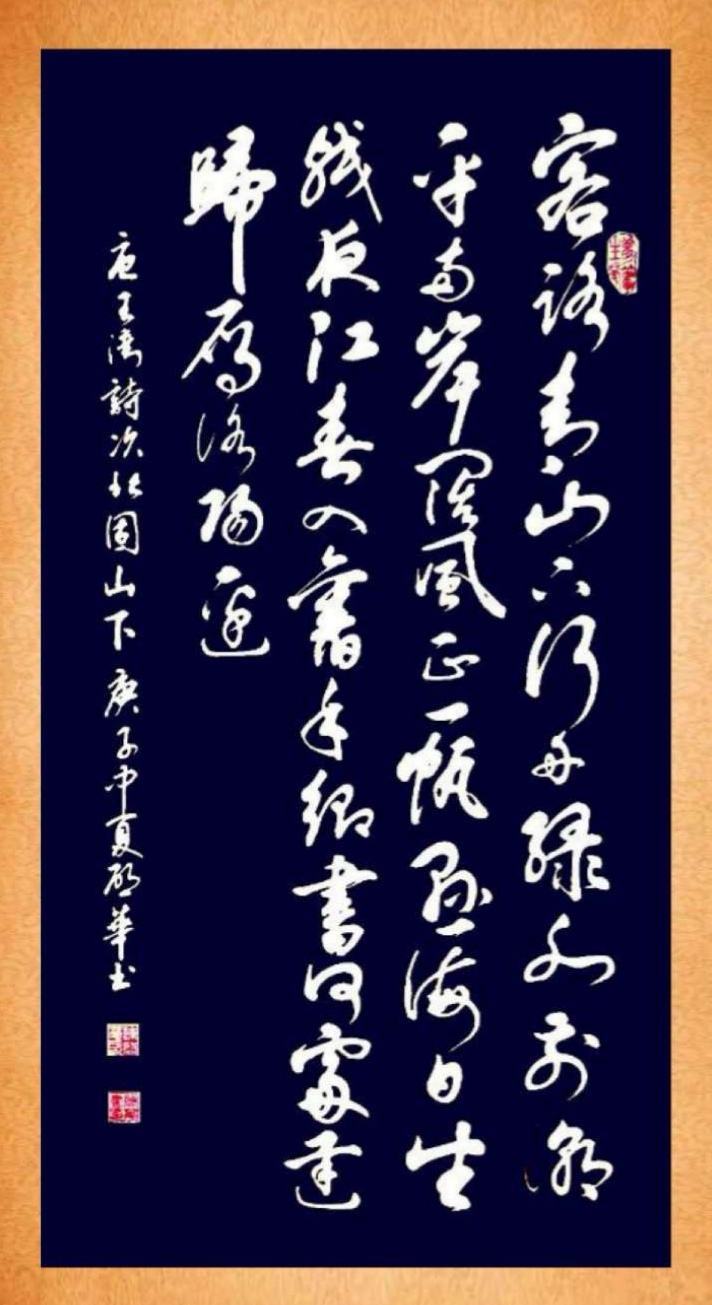 客路青山下行舟緑水前潮
平两岸闊風正一帆懸海日生
残夜江春入舊年鄉書何處達
歸雁洛陽邊
唐王灣詩次北固山下庚子中夏華书